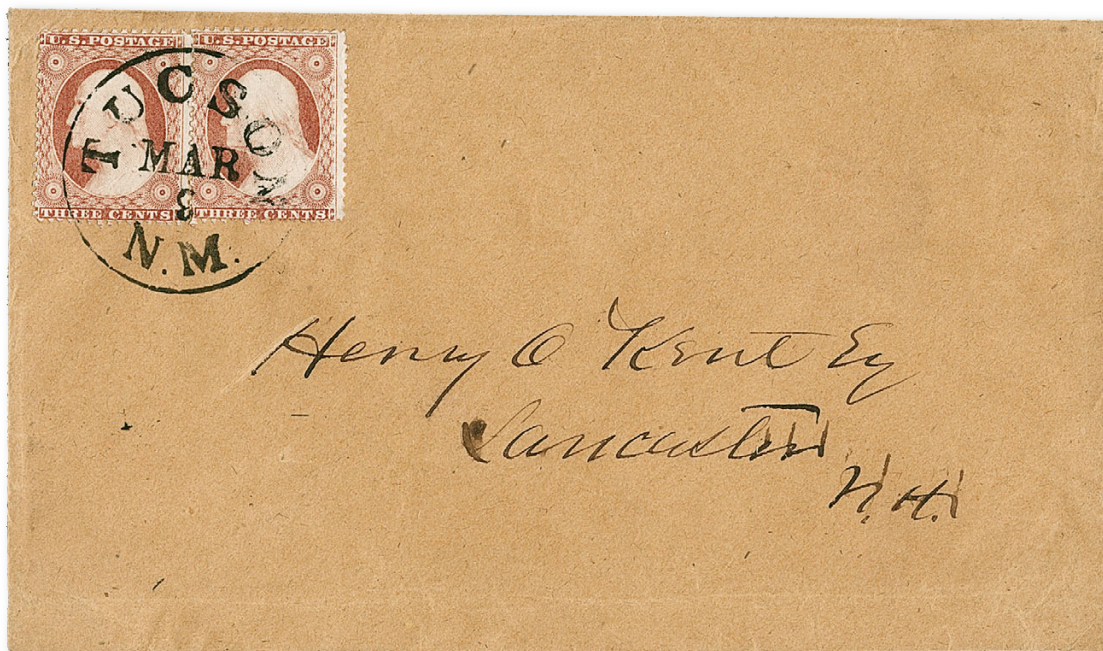 U.S.POSTAGE U.S.POSTAGE
TUCSON
MAR
N.M.
THREE CENTS THREE CENTS
Henry O Kent Esq
Lancaster
N.H.